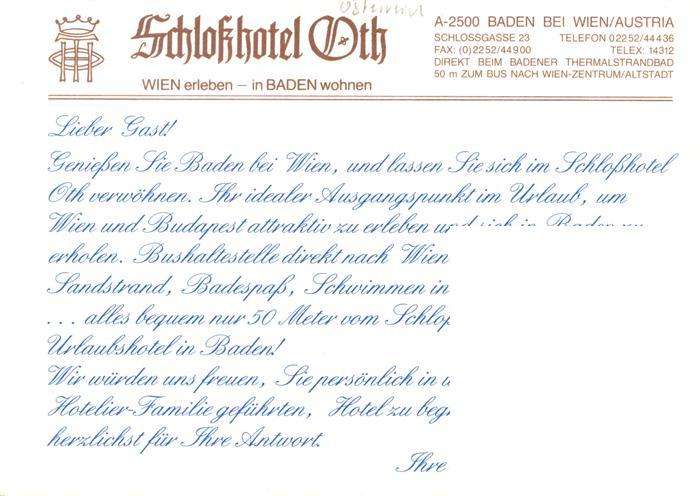 Schloßhotel Oth
WIEN erleben – in BADEN wohnen
A-2500 BADEN BEI WIEN/AUSTRIA
SCHLOSSGASSE 23 TELEFON 02252/44436
FAX: (0)2252/44900 TELEX: 14312
DIREKT BEIM BADENER THERMALSTRANDBAD
50 m ZUM BUS NACH WIEN-ZENTRUM/ALTSTADT
Lieber Gast!
Genießen Sie Baden bei Wien, und lassen Sie sich im Schloßhotel
Oth verwöhnen. Ihr idealer Ausgangspunkt im Urlaub, um
Wien und Budapest attraktiv zu erleben und sich in Baden
erholen. Bushaltestelle direkt nach Wien
Sandstrand, Badespaß, Schwimmen in
... alles bequem nur 50 Meter vom
Urlaubshotel in Baden!
Wir würden uns freuen, Sie persönlich in
Hotelier-Familie geführten, Hotel zu
herzlichst für Ihre Antwort.
Ihre